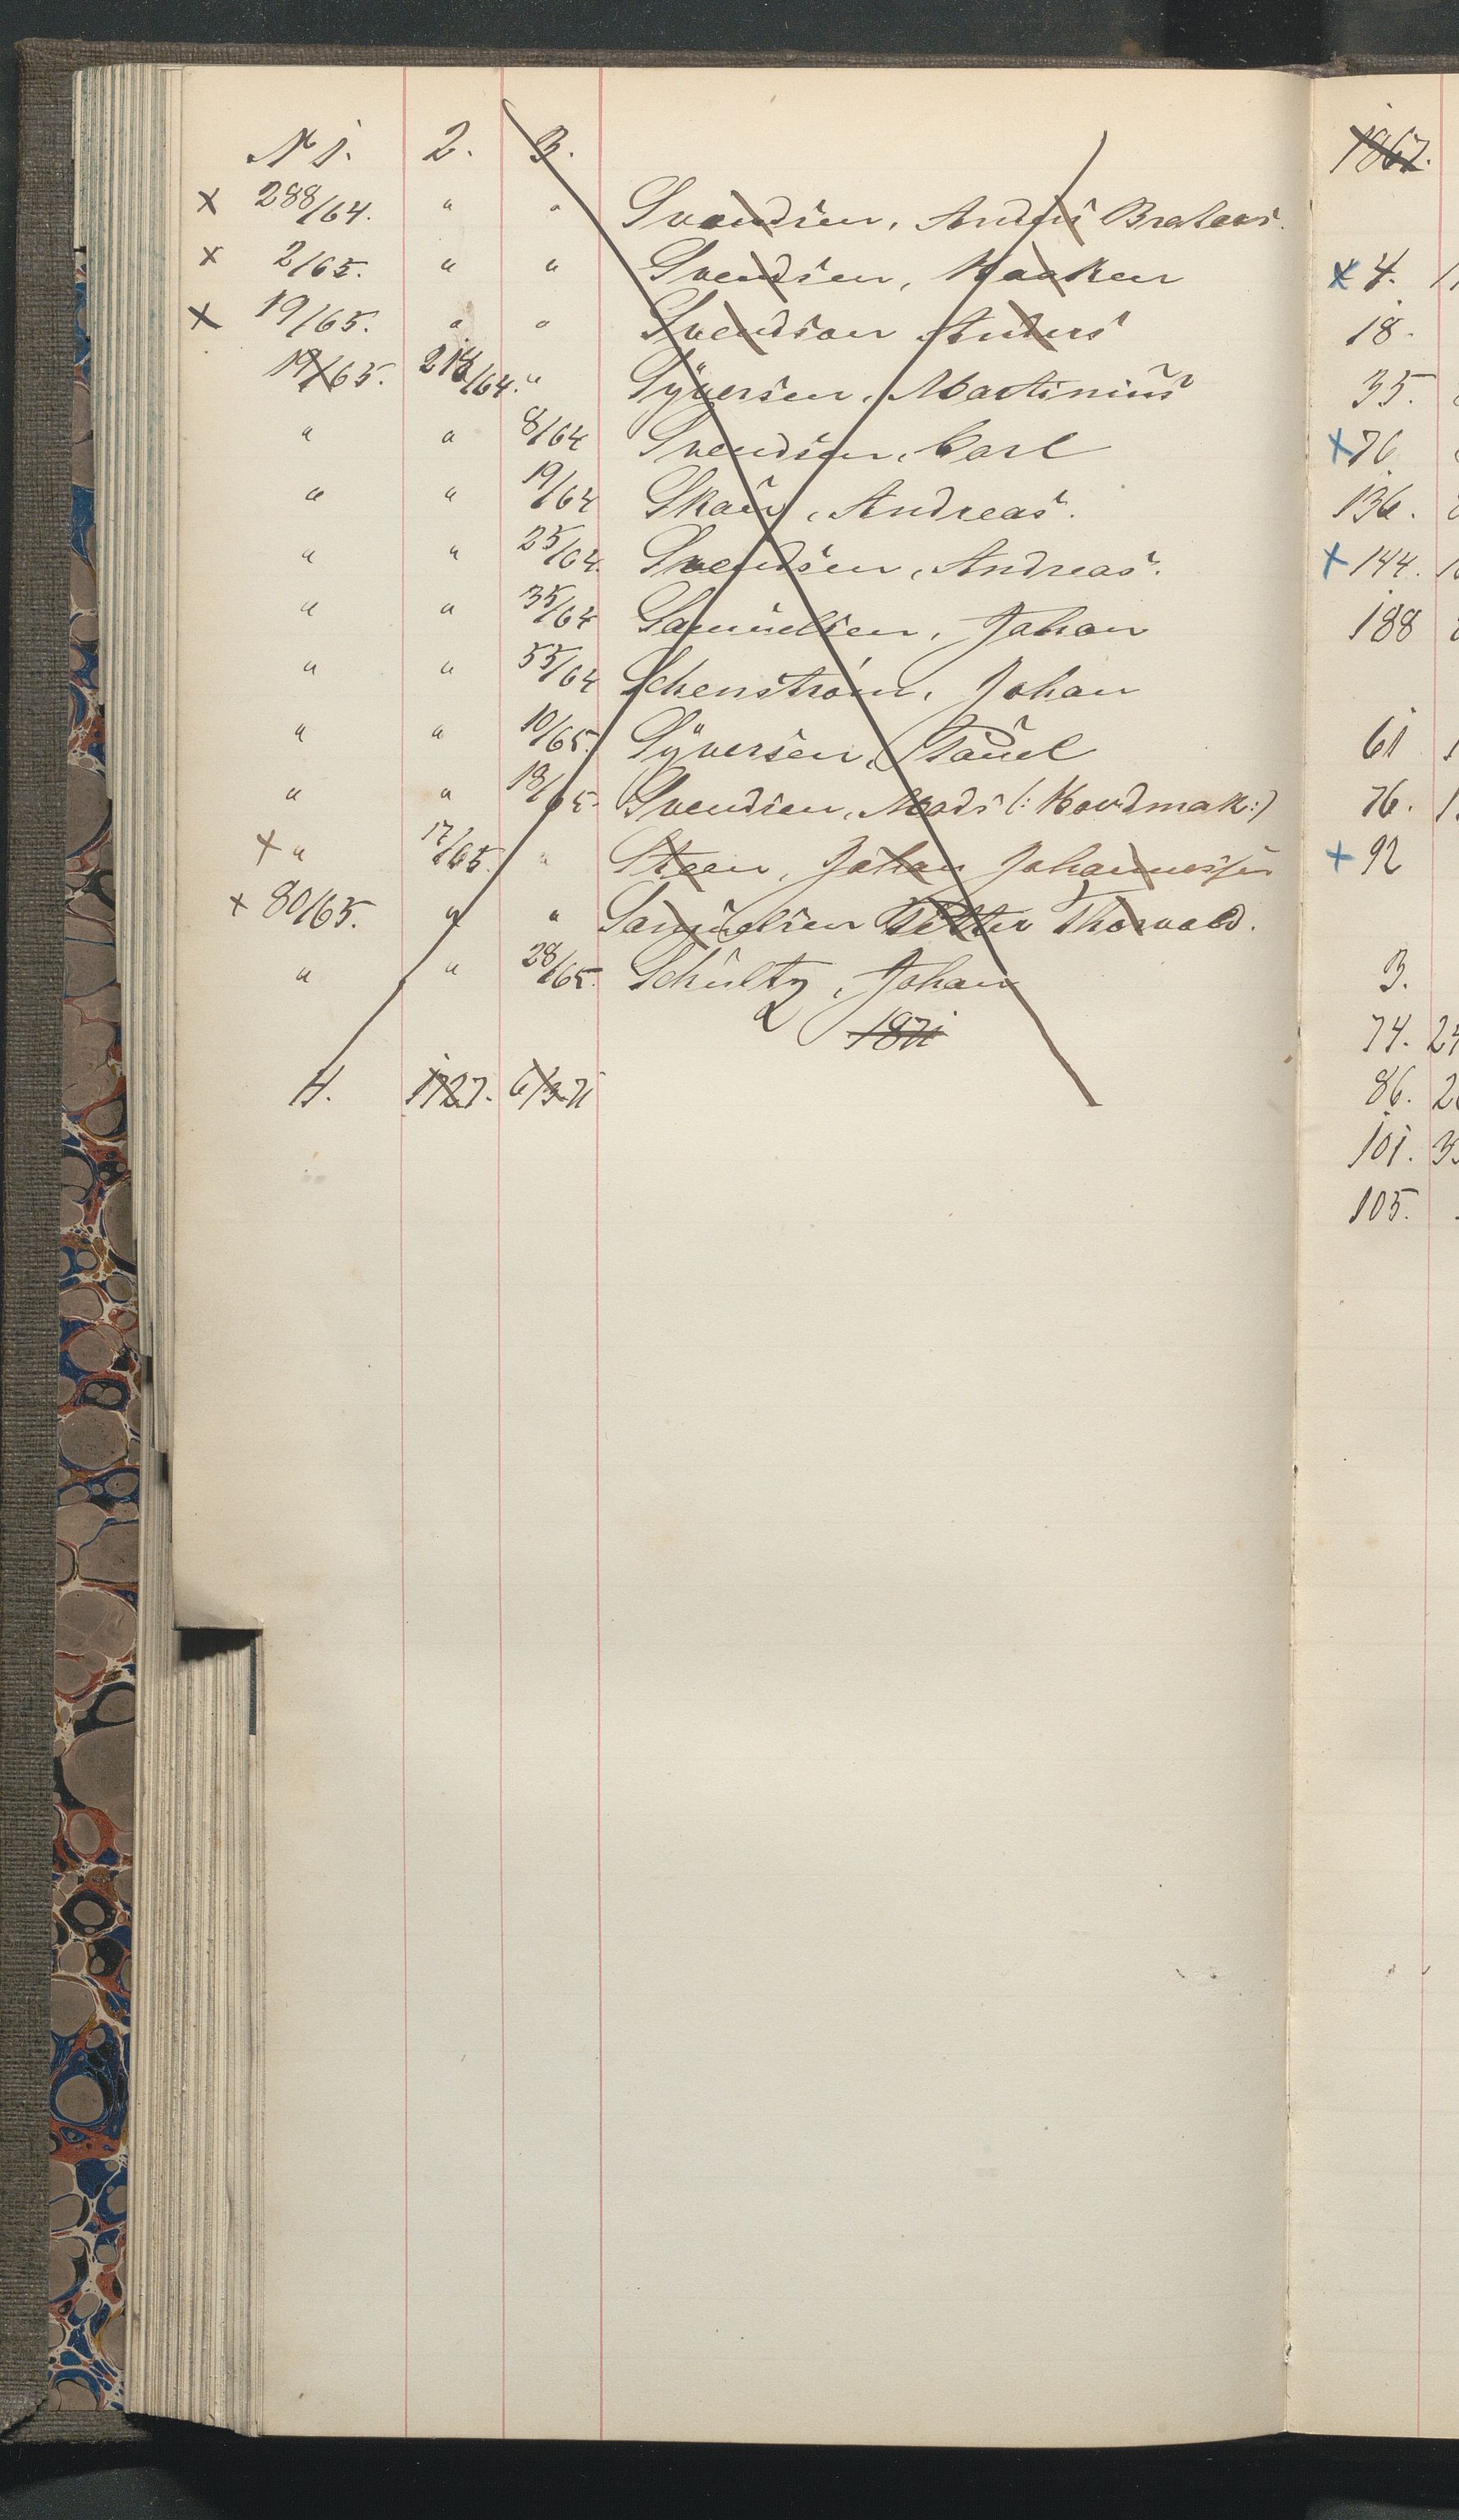 N 1. 2. 3.
x 288/64. " " Svendsen, Anders Brataas.
x 2/65. " " Svendsen, Haaken
x 19/65. " " Svendsen Anders
19/65. 218/64. " Syversen, Martinius
" " 8/64 Svendsen, Carl
" " 19/64 Skau, Andreas.
" " 25/64. Svendsen, Andreas.
" " 35/64 Samuelsen, Johan
" " 55/64 Schenström, Johan
" " 10/65. Syversen, Paul
" " 18/65. Svendsen, Mads (: Hovdmak:)
x " 17/65. " Steen, Johan Johannessen
x 80/65. " " Samuelsen Petter Thorvald.
" " 28/65. Schultz, Johan
1871
H. 1727. 6/3 71
1867.
x 4.
18.
35.
x 76.
136.
x 144.
188
61
76.
x 92
3.
74.
86.
101.
105.